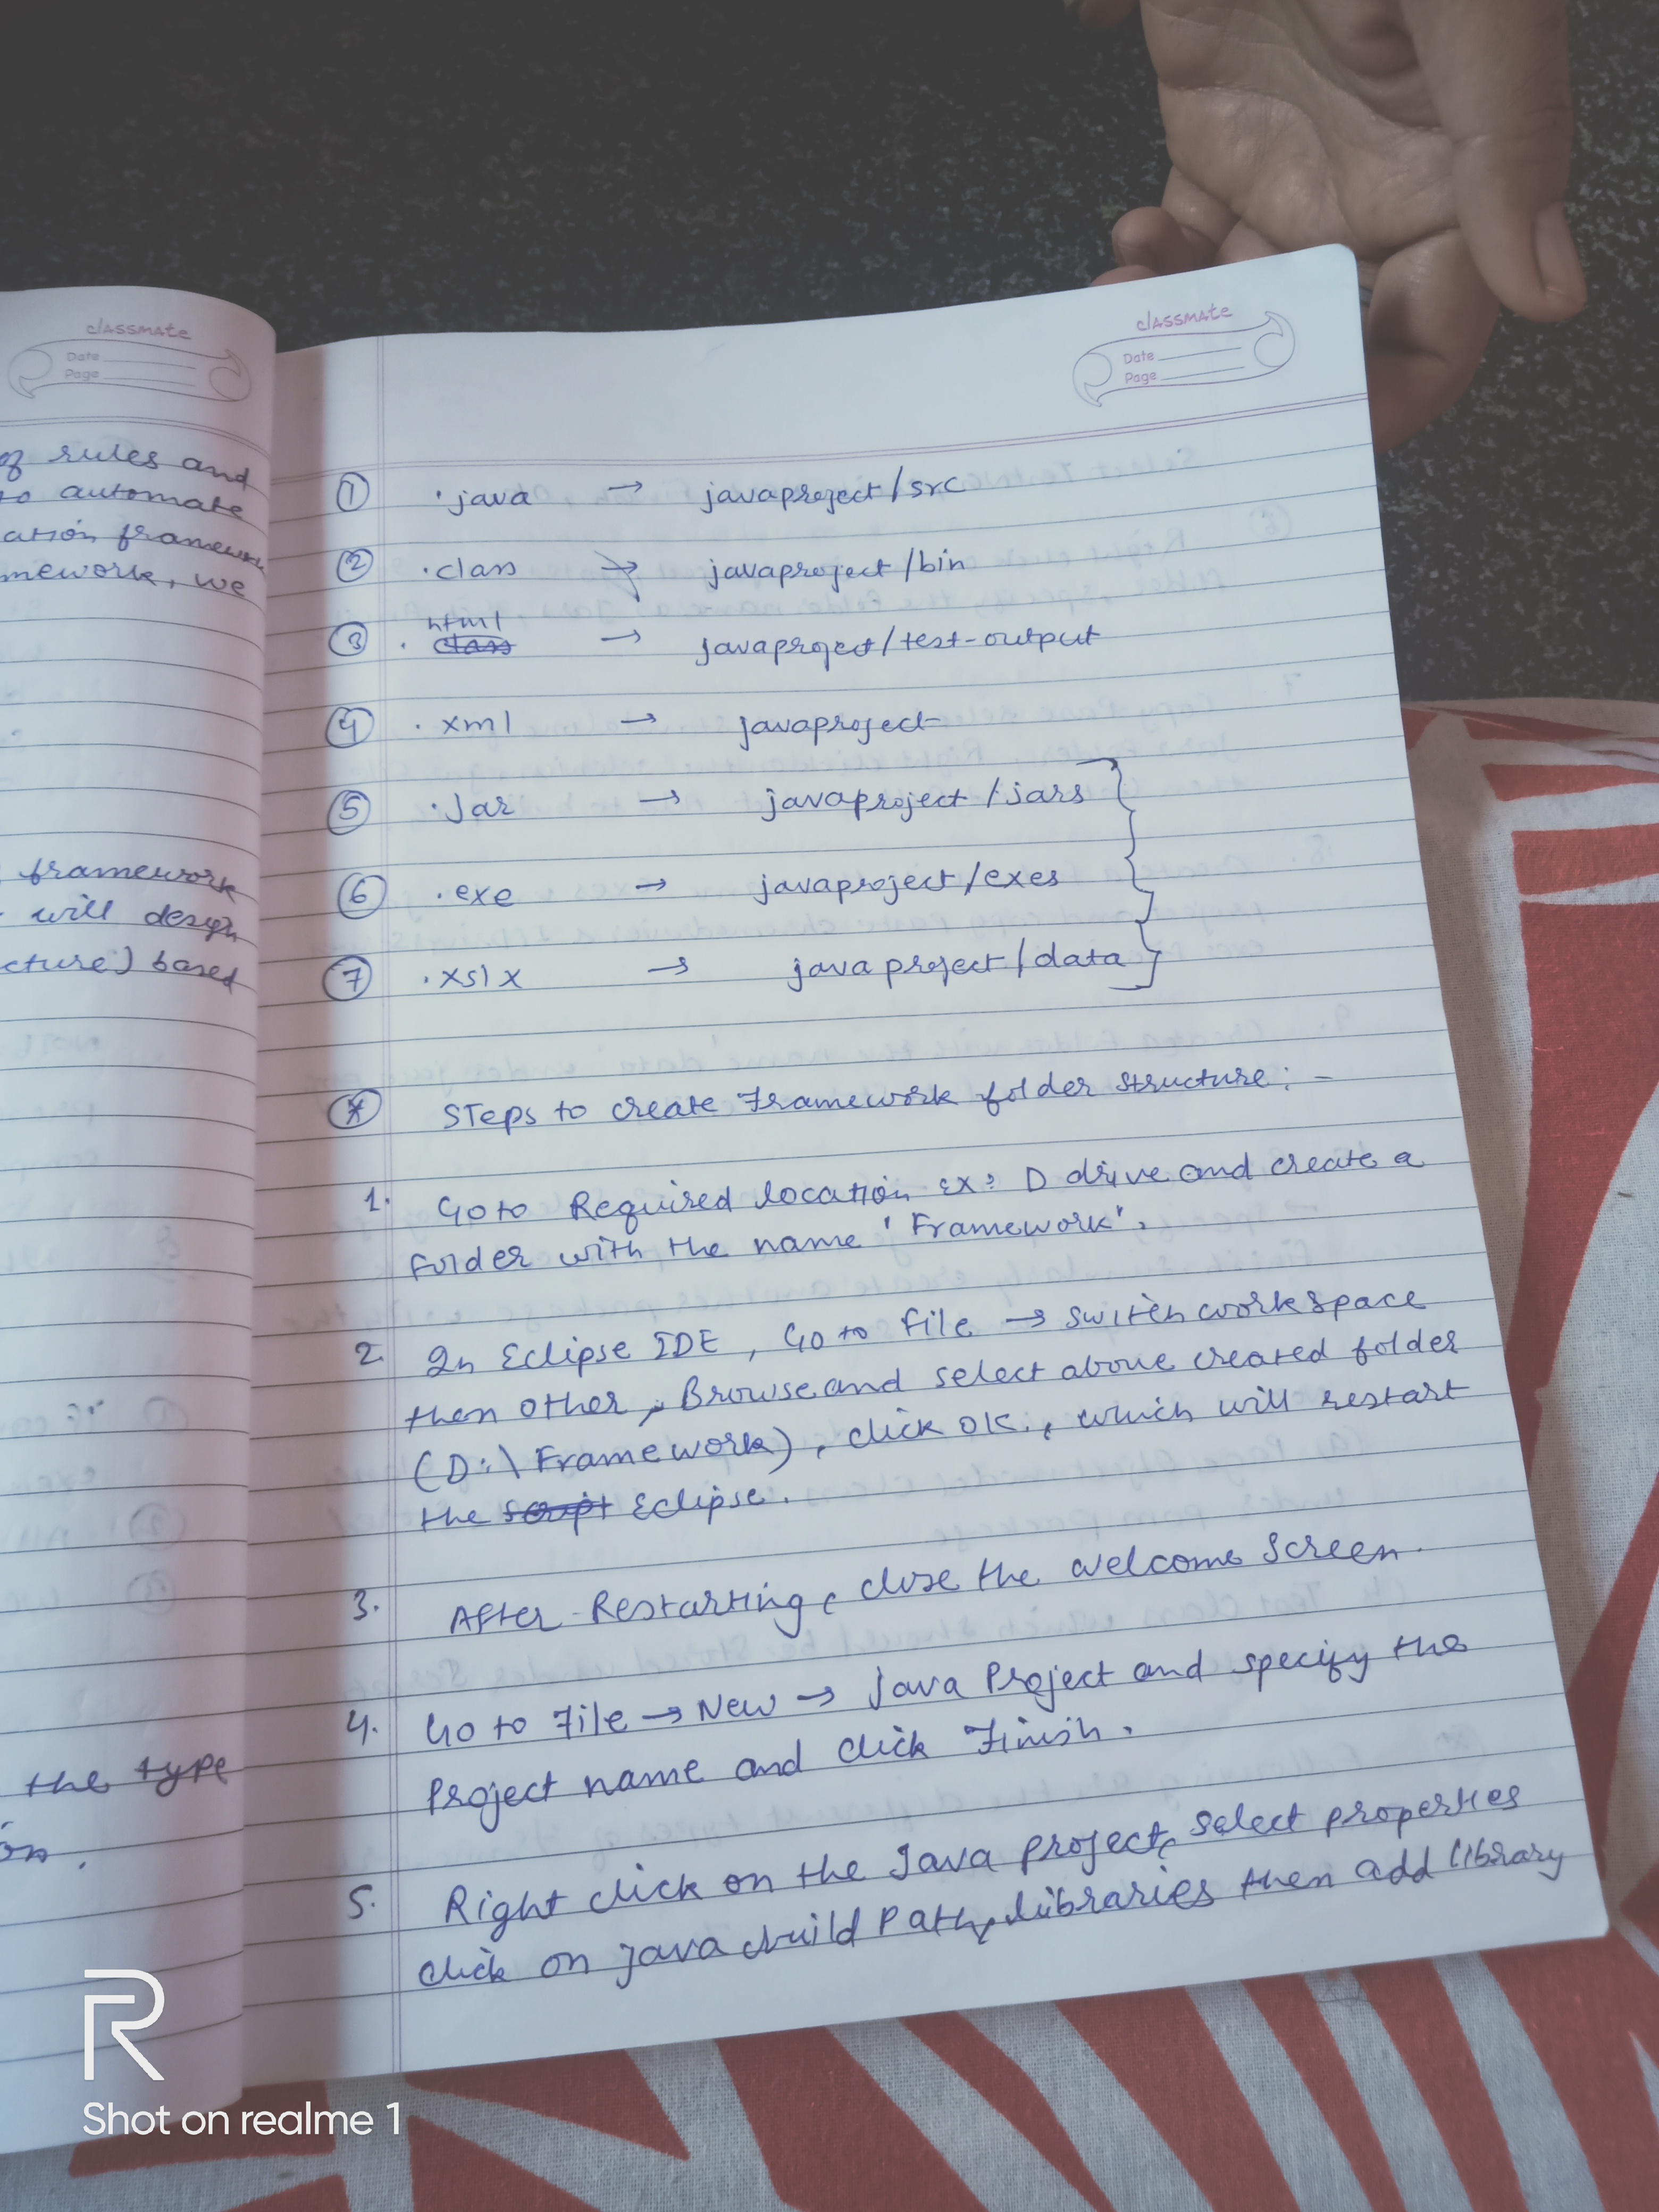 classmate
Date
Page
of rules and
to automate
ation framework
mework, we
framework
will design
cture) based
the type
on.
classmate
Date
Page
① .java → javaproject/src
② .class → javaproject/bin
html
③ . class → javaproject/test-output
④ .xml → javaproject
⑤ .Jar → javaproject/jars
⑥ .exe → javaproject/exes
⑦ .xslx → javaproject/data
* Steps to create Framework folder structure: -
1. Go to Required location ex: D drive and create a
folder with the name 'Framework'.
2. In Eclipse IDE, Go to File → switch workspace
then other, Browse and select above created folder
(D:\Framework), click OK., which will restart
the script Eclipse.
3. After Restarting, close the welcome screen.
4. Go to File → New → Java Project and specify the
Project name and click Finish.
5. Right click on the Java project, select properties
click on java build Path, libraries then add library
R
Shot on realme 1